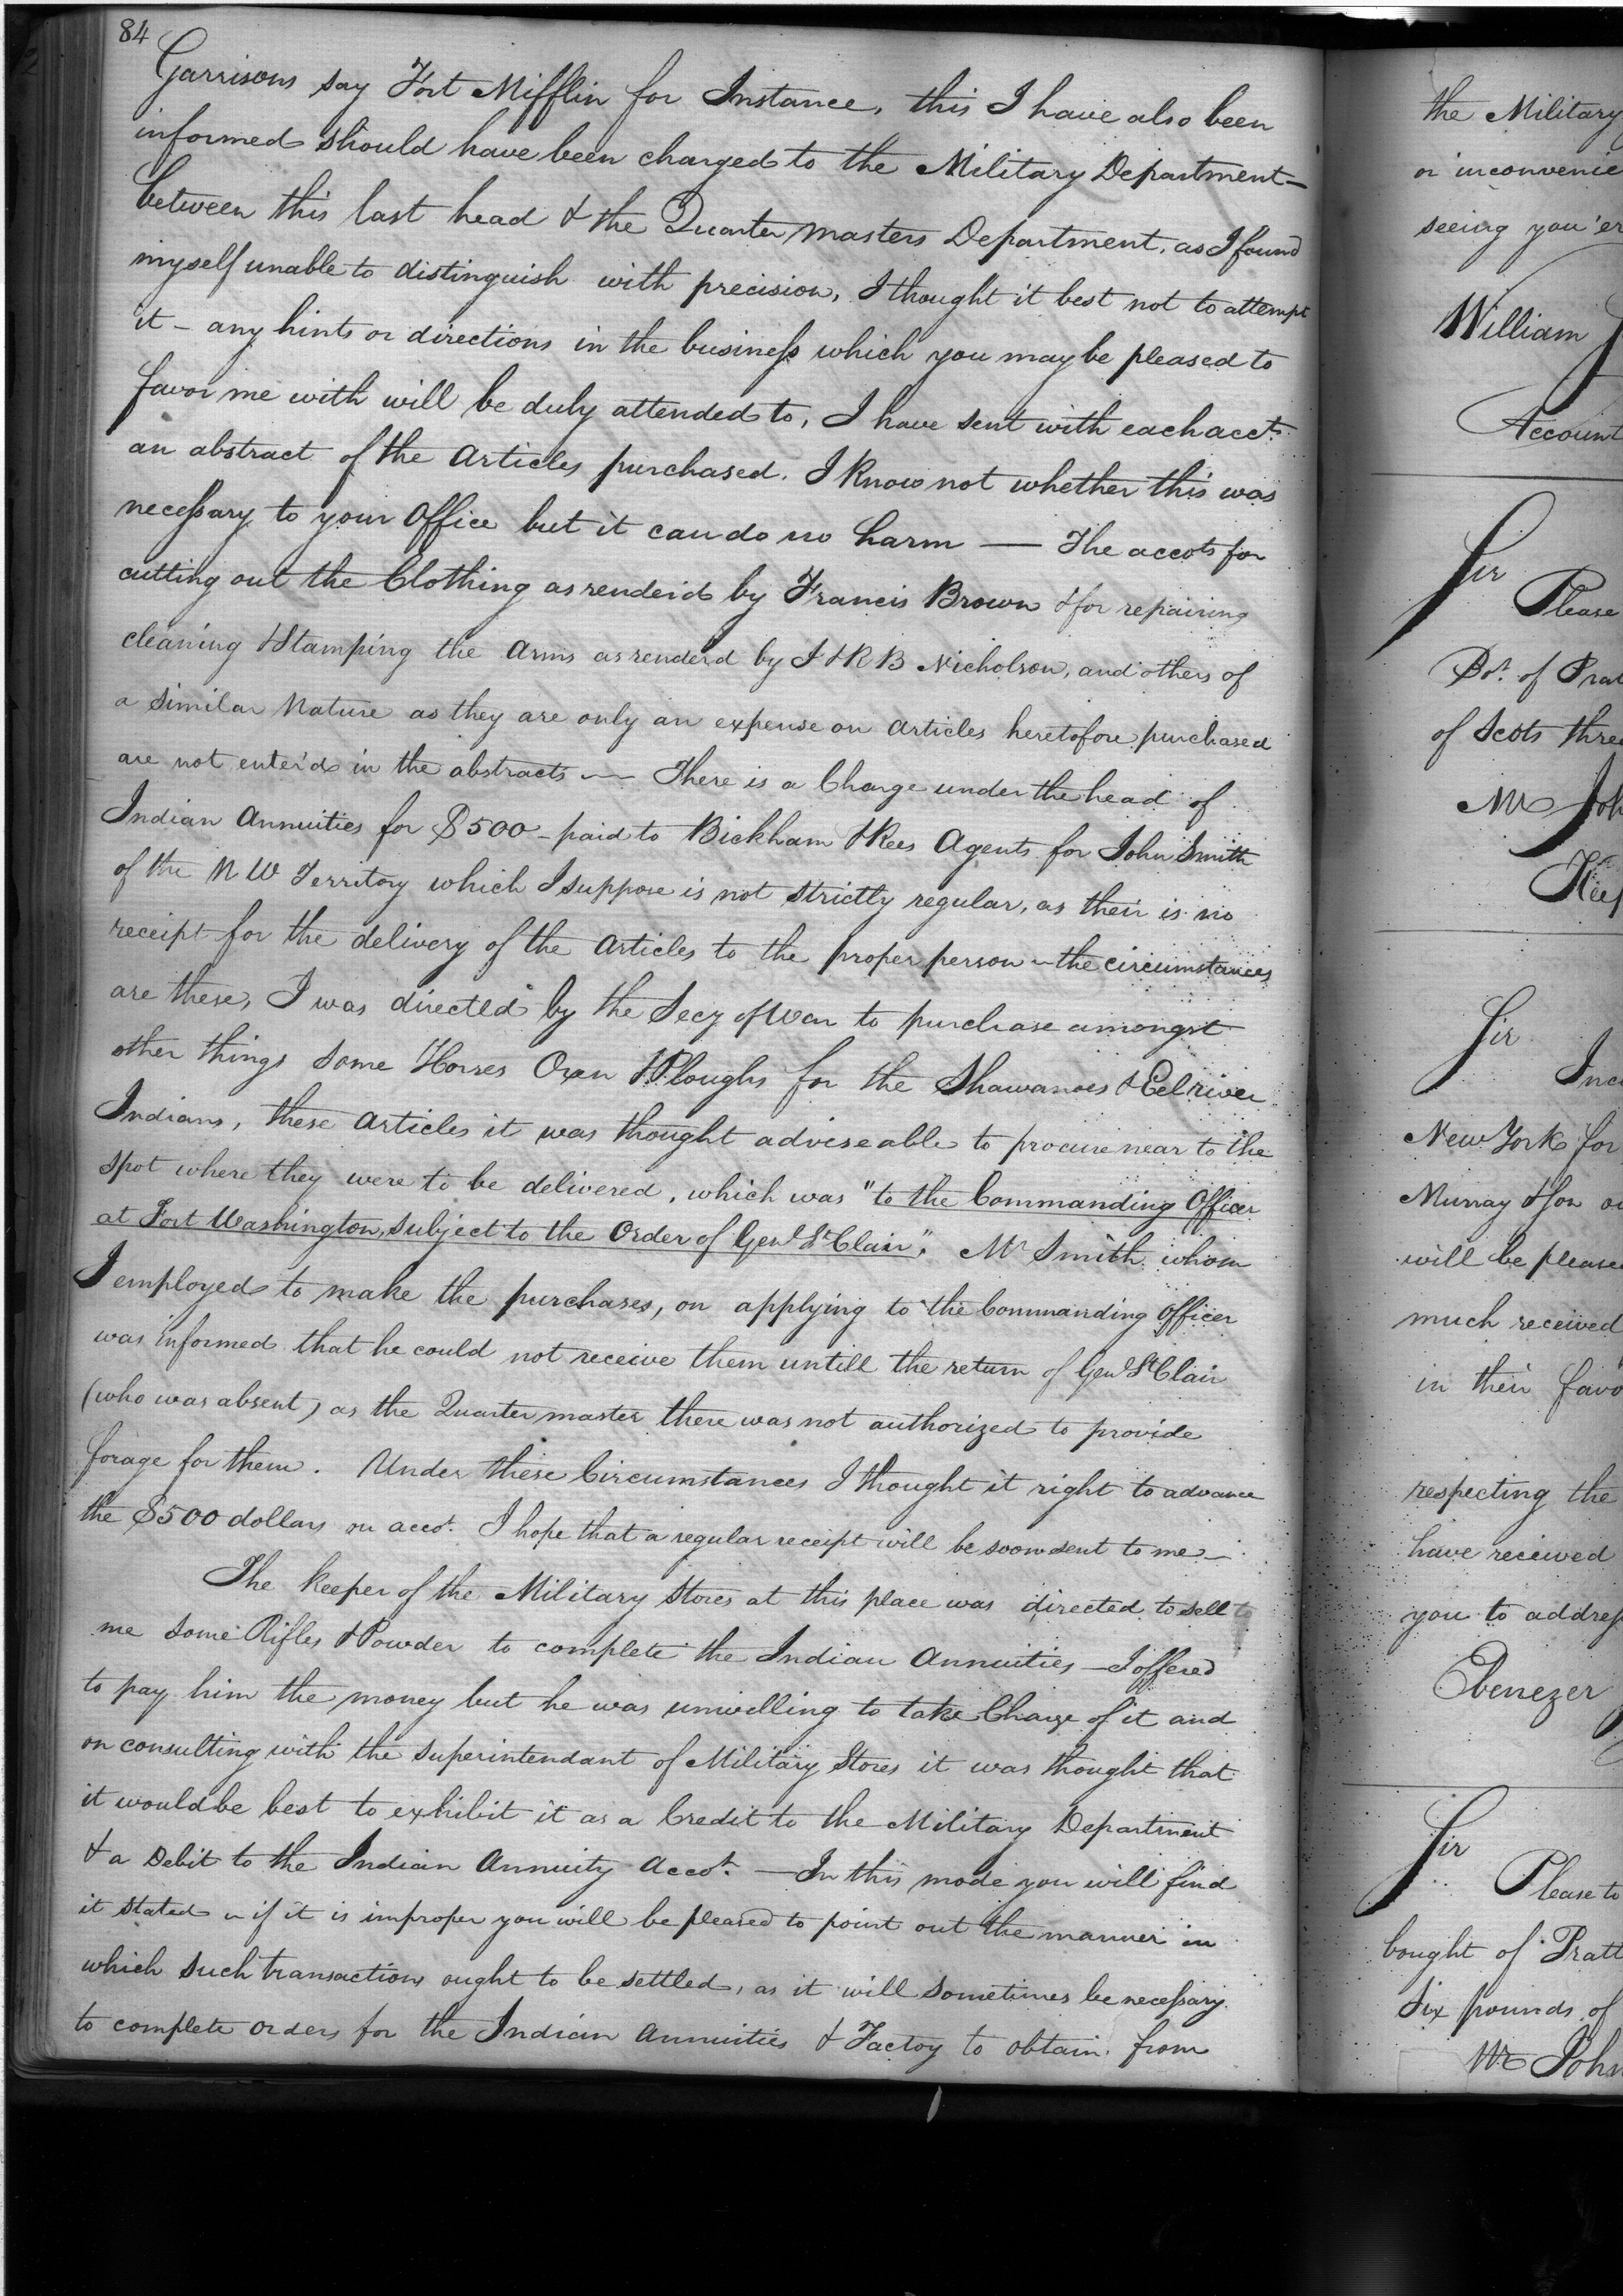 84
Garrisons say Fort Mifflin for Instance, this I have also been
informed should have been charged to the Military Department —
between this last head & the Quarter masters Department, as I found
myself unable to distinguish with precision, I thought it best not to attempt
it - any hints or directions in the business which you may be pleased to
favor me with will be duly attended to, I have sent with each acct.
an abstract of the articles purchased. I know not whether this was
necessary to your Office but it can do no harm — The accots for
cutting out the Clothing as render'd by Francis Brown & for repairing
cleaning & Stamping the Arms as render'd by J & R B Nicholson, and others of
a similar Nature as they are only an expense on articles heretofore purchased
are not enter'd in the abstracts — There is a Charge under the head of
Indian Annuities for $500 - paid to Bickham & Rees Agents for John Smith
of the N W Territory which I suppose is not strictly regular, as their is no
receipt for the delivery of the articles to the proper person - the circumstances
are these, I was directed by the Secy of War to purchase amongst
other things some Horses Oxen & Ploughs for the Shawanoes & Eel river
Indians, these articles it was thought adviseable to procure near to the
spot where they were to be delivered, which was "to the Commanding Officer
at Fort Washington, subject to the Order of Genl St Clair". Mr Smith whom
I employed to make the purchases, on applying to the Commanding officer
was informed that he could not receive them untill the return of Genl St Clair
(who was absent) as the Quarter master there was not authorized to provide
forage for them. Under these Circumstances I thought it right to advance
the $500 dollars on accot. I hope that a regular receipt will be soon sent to me —
The keeper of the Military Stores at this place was directed to sell to
me some Rifles & Powder to complete the Indian Annuities — I offered
to pay him the money but he was unwilling to take Charge of it and
on consulting with the superintendant of Military Stores it was thought that
it would be best to exhibit it as a Credit to the Military Department
& a Debit to the Indian Annuity Accot. — In this mode you will find
it stated - if it is improper you will be pleased to point out the manner in
which such transactions ought to be settled, as it will sometimes be necessary
to complete orders for the Indian annuities & Factoy to obtain from
the Military
or inconvenie
seeing you'er
William
Account
Sir
Please
Bot. of Prat
of Scots threa
Mr Joh
Keep
Sir
Inc
New York for
Murray & Son
will be please
much received
in their favo
respecting the
have received
you to address
Ebenezer
Sir
Please to
bought of Pratt
Six pounds of
Mr John